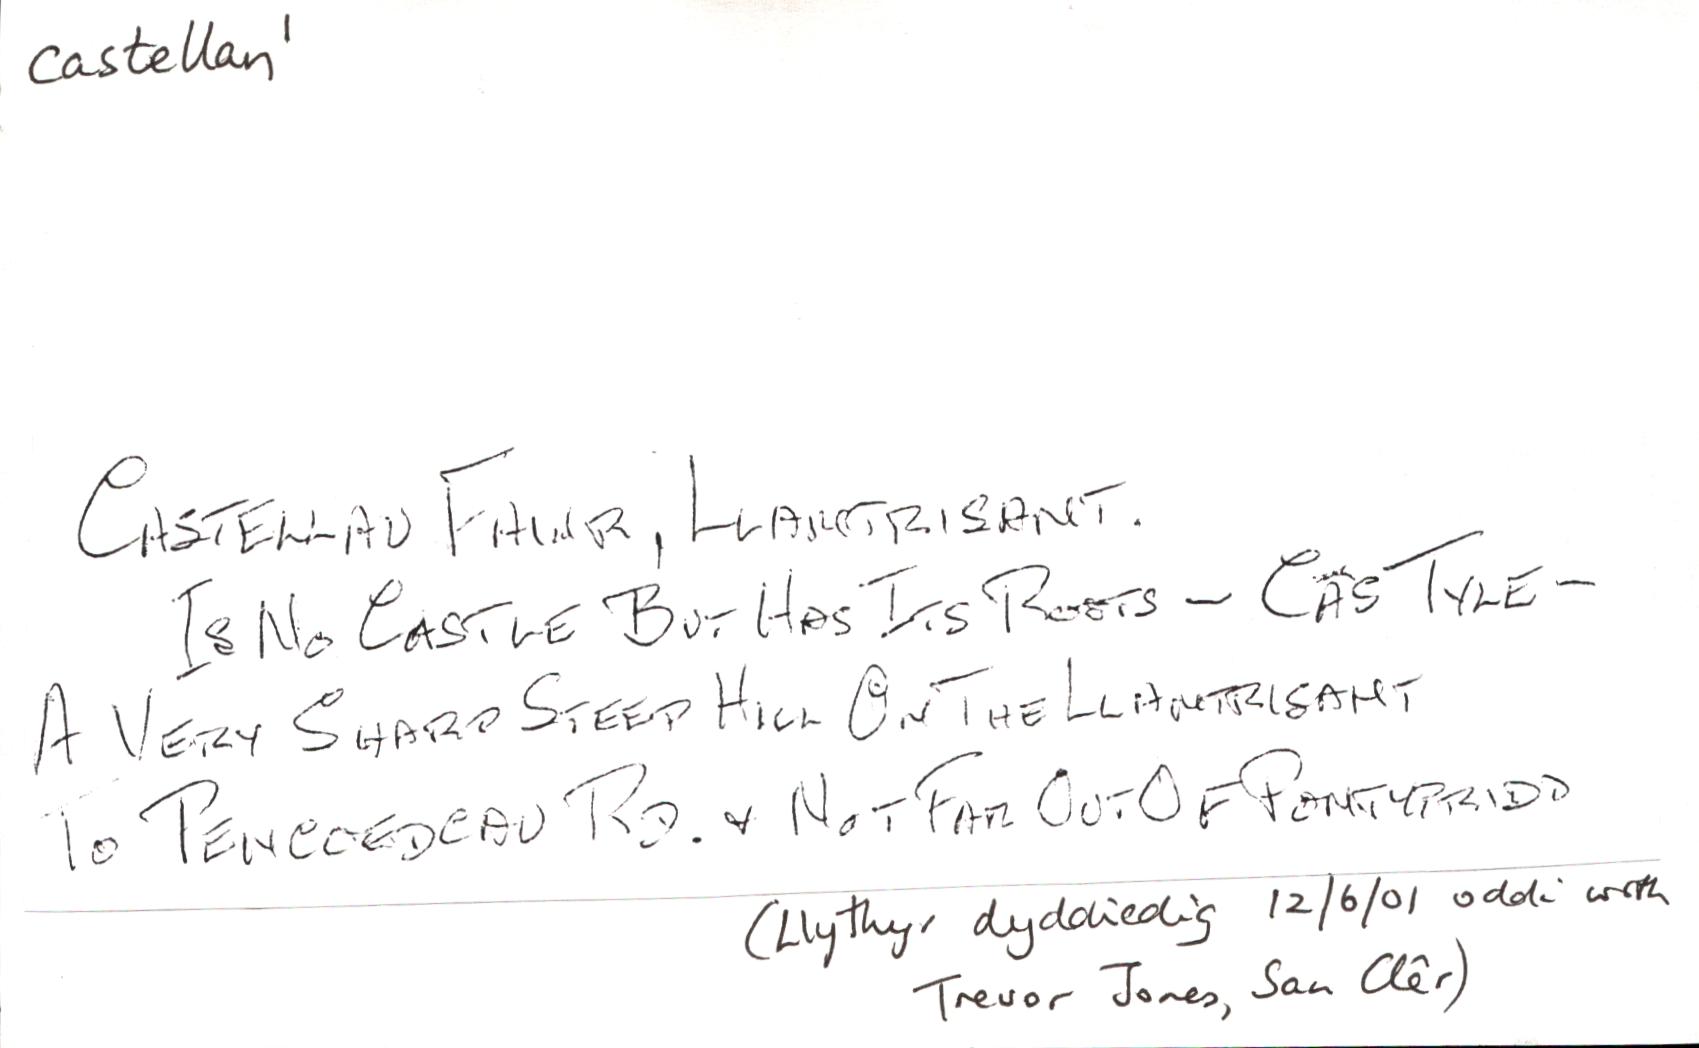 castellan¹
CASTELLAU FAWR, LLANTRISANT.
IS NO CASTLE BUT HAS ITS ROOTS – CÄS TYLE –
A VERY SHARP STEEP HILL ON THE LLANTRISANT
TO PENCOEDCAU RD. & NOT FAR OUT OF PONTYPRIDD
(Llythyr dyddiedig 12/6/01 oddi wrth
Trevor Jones, San Clêr)